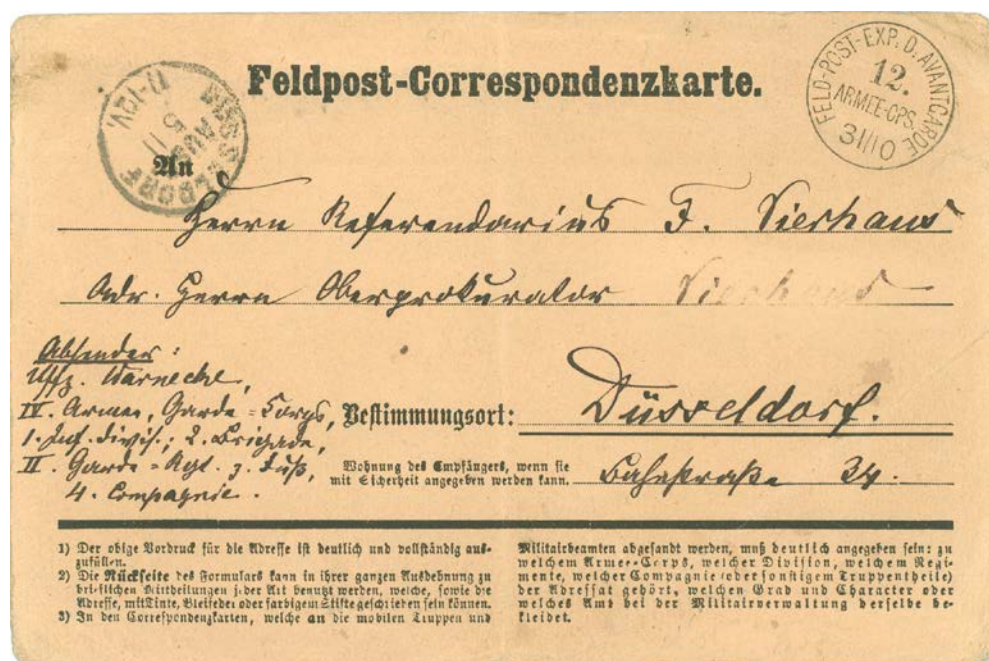 Feldpost-Correspondenzkarte.
FELD-POST-EXP. D. AVANTGARDE
12.
ARMEE-CPS.
31/10
DÜSSELDORF
An
Herrn Referendarius F. Vierhaus
Adr. Herrn Oberprokurator Vierhaus
Absender:
Uffz. Warnecke,
IV. Armee, Garde-Corps,
1. Inf. divis.; 2. Brigade,
II. Garde-Rgt. z. Fuß,
4. Compagnie.
Bestimmungsort: Düsseldorf.
Wohnung des Empfängers, wenn sie
mit Sicherheit angegeben werden kann. Bahnstraße 34.
1) Der obige Vordruck für die Adresse ist deutlich und vollständig aus-
zufüllen.
2) Die Rückseite des Formulars kann in ihrer ganzen Ausdehnung zu
brieflichen Mittheilungen jeder Art benutzt werden, welche, sowie die
Adresse, mit Tinte, Bleifeder oder farbigem Stifte geschrieben sein können.
3) In den Correspondenzkarten, welche an die mobilen Truppen und
Militairbeamten abgesandt werden, muß deutlich angegeben sein: zu
welchem Armee-Corps, welcher Division, welchem Regi-
mente, welcher Compagnie (oder sonstigem Truppentheile)
der Adressat gehört, welchen Grad und Character oder
welches Amt bei der Militairverwaltung derselbe be-
kleidet.